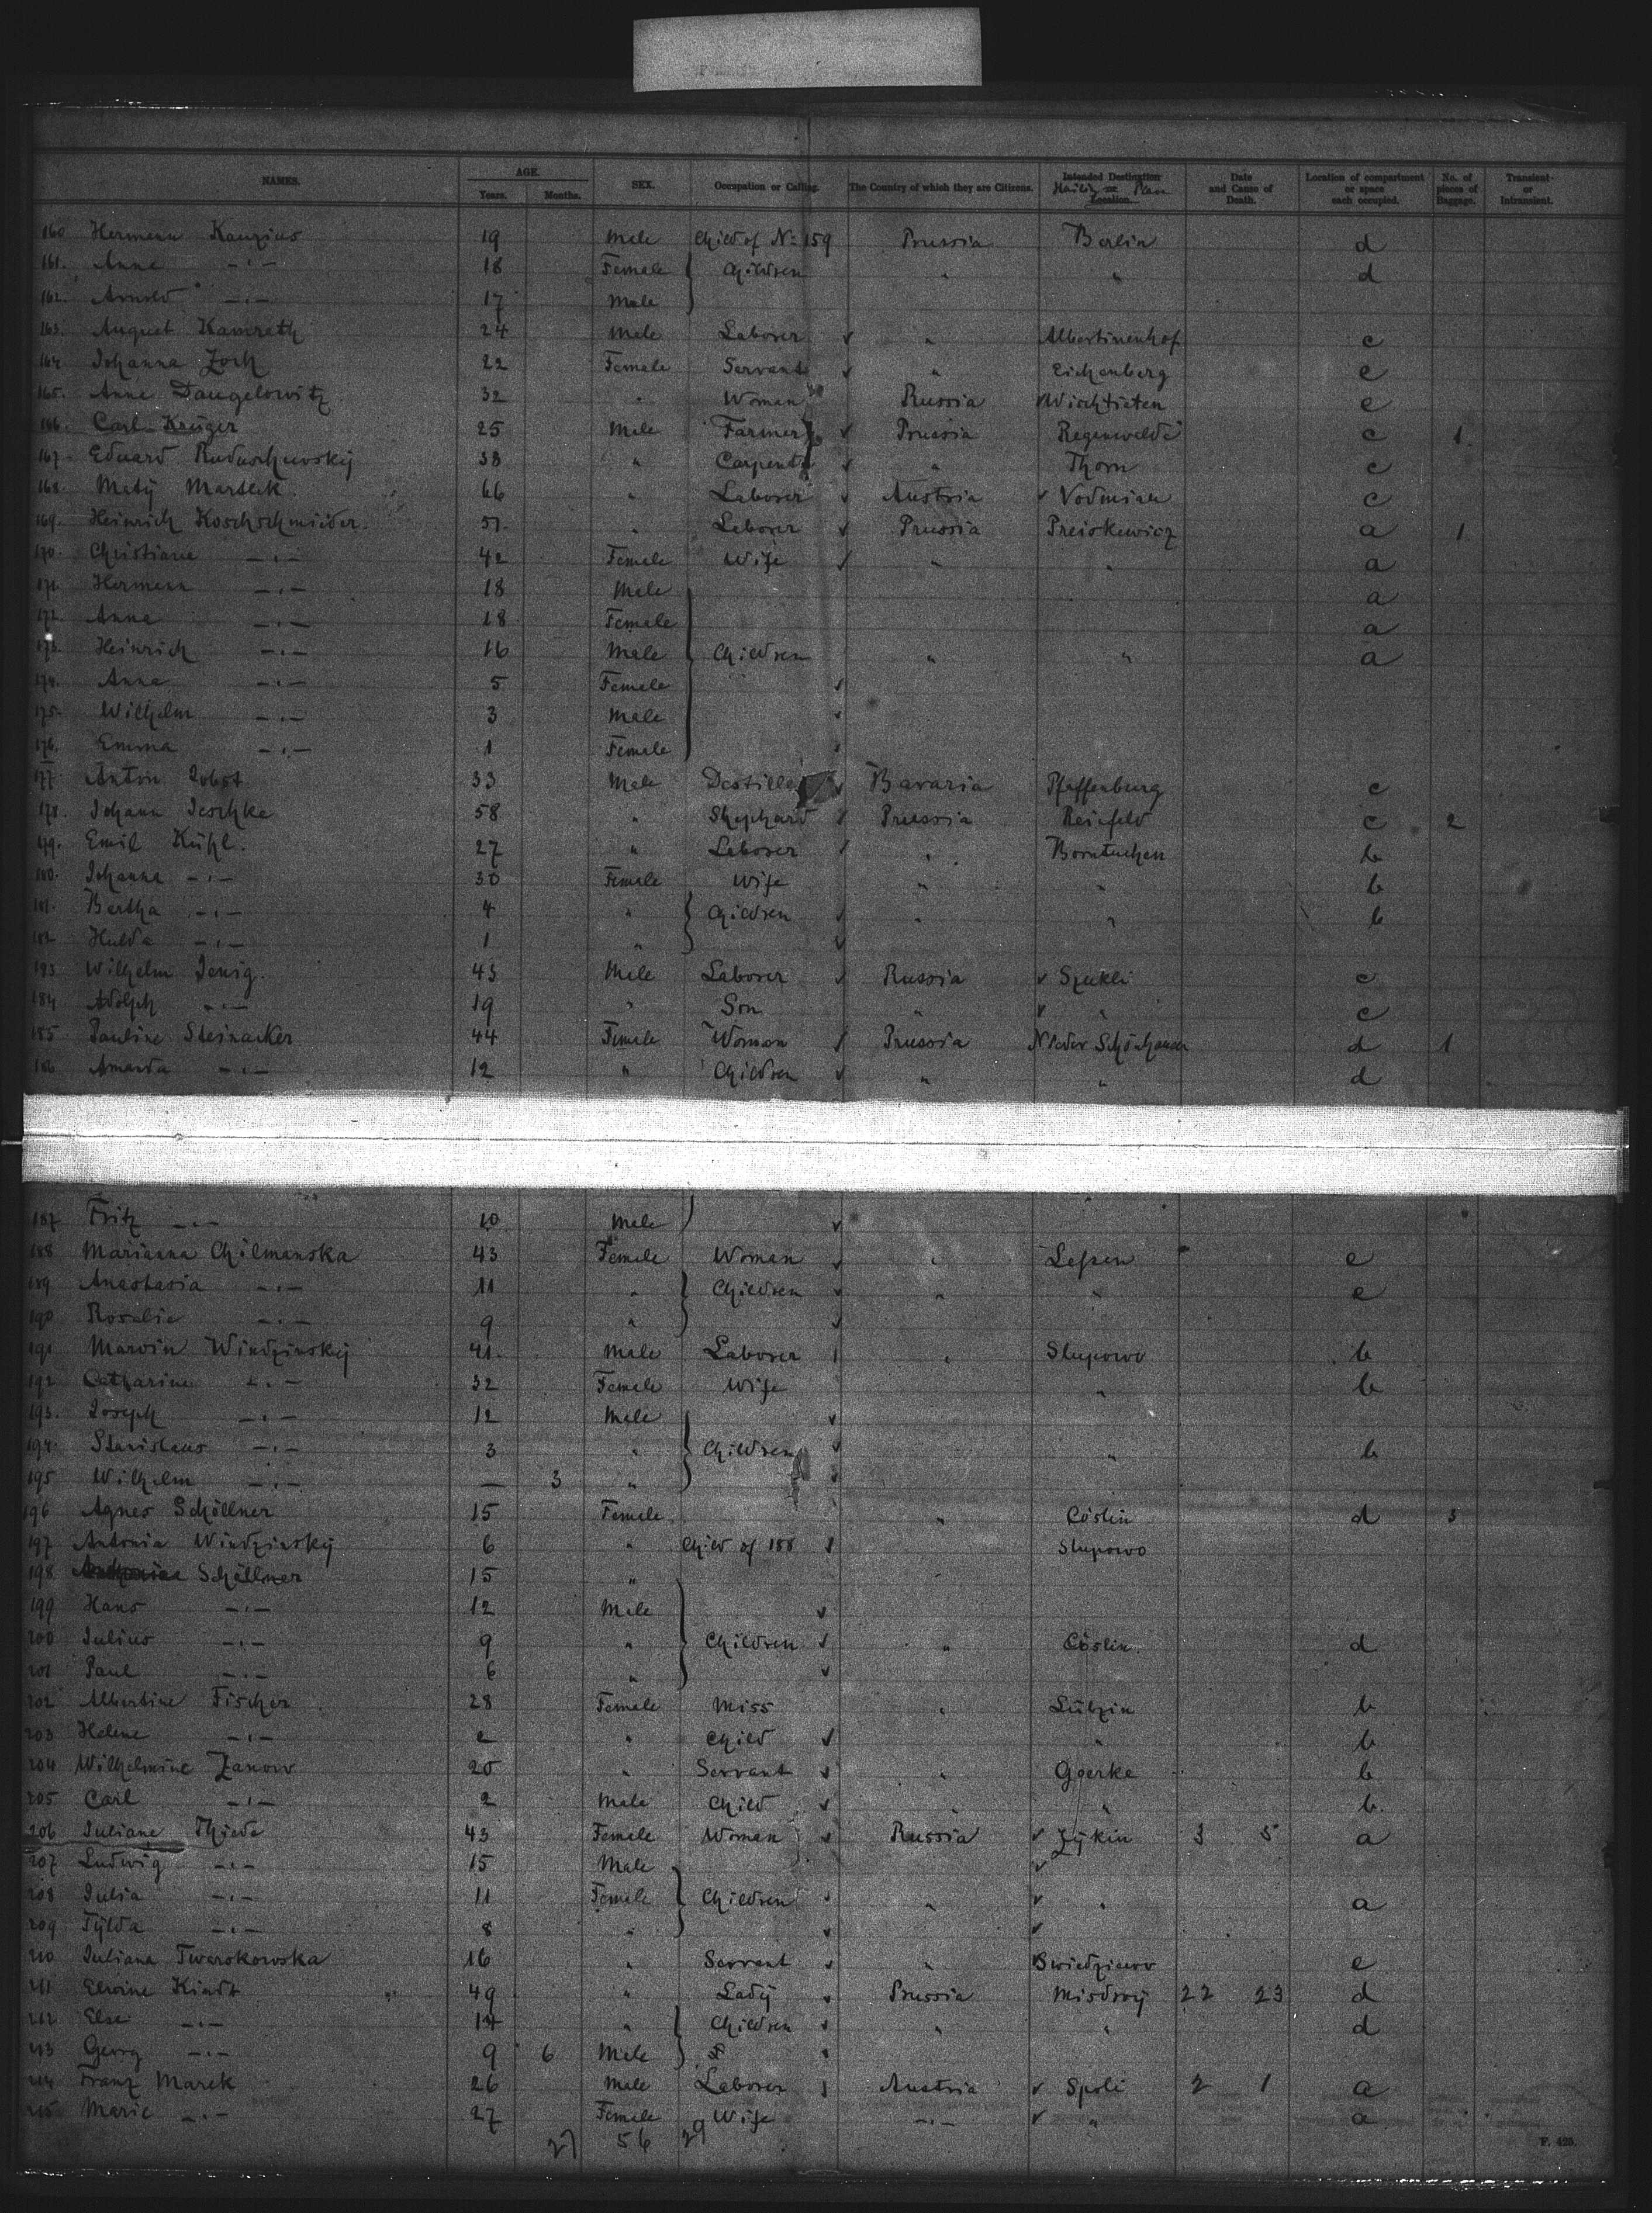 NAMES. AGE. Years. Months. SEX. Occupation or Calling. The Country of which they are Citizens. Intended Destination or Location. Place Date and Cause of Death. Location of compartment or space each occupied. No. of pieces of Baggage. Transient or Intransient.
160 Hermann Kanzius 19 Male Child of No 159 Prussia Berlin d
161. Anna -"- 18 Female Children " " d
162. Arnold -"- 17 Male
163. August Kamrath 24 Male Laborer " Albertinenhof c
164. Johanna Zoch 22 Female Servant " Eichenberg e
165. Anna Daugelowitz 32 " Woman Russia Wischtieten e
166. Carl Krüger 25 Male Farmer Prussia Regenwalde c 1
167. Eduard Raduschewsky 38 " Carpenter " Thorn c
168. Maty Marschik 66 " Laborer Austria Vodmian c
169. Heinrich Koschschmieder. 51. " Laborer Prussia Preiskewicz a 1
170. Christiane -"- 42 Female Wife " " a
171. Hermann -"- 18 Male a
172. Anna -"- 18 Female a
173. Heinrich -"- 16 Male Children " " a
174. Anna -"- 5 Female
175. Wilhelm -"- 3 Male
176. Emma -"- 1 Female
177. Anton Jobst 33 Male Destiller Bavaria Pfaffenburg c
178. Johann Jeschke 58 " Shephard Prussia Reinfeld c 2
179. Emil Kühl. 27 " Laborer " Borntuchen b
180. Johanna -"- 30 Female Wife " " b
181. Bertha -"- 4 " Children " " b
182. Hulda -"- 1 "
183. Wilhelm Jenig. 43 Male Laborer Russia Szukli c
184 Adolph -"- 19 " Son " " c
185 Pauline Steinacker 44 Female Woman Prussia Nieder Schönhausen d 1
186 Amanda -"- 12 " Children " " d
187 Fritz -"- 10 Male
188 Marianna Chilmanska 43 Female Woman " Lessen e
189 Anastasia -"- 11 " Children " " e
190 Rosalie -"- 9 "
191 Marvin Windzinsky 41. Male Laborer " Slupowo b
192 Catharine -"- 32 Female Wife " b
193. Joseph -"- 12 Male
194. Stanislaus -"- 3 " Children " b
195 Wilhelm -"- — 3 "
196 Agnes Schöllner 15 Female " Cöslin d 3
197 Antonia Windzinsky 6 " Child of 188 Slupowo
198 Schöllner 15 "
199 Hans -"- 12 Male
200 Julius -"- 9 " Children " Cöslin. d
201 Paul -"- 6 "
202 Albertine Fischer 28 Female Miss " Lübzin b
203 Helene -"- 2 " Child " b
204 Wilhelmine Zanow 20 " Servant " Goerke b
205 Carl -"- 2 Male Child " " b.
206 Juliane Thiede 43 Female Woman Russia Zykin 3 5 a
207 Ludwig -"- 15 Male
208 Julia -"- 11 Female Children " " a
209 Tylda -"- 8 "
210 Juliana Twerokowska 16 " Servant " Swiedziewo e
211 Elwine Kindt 49 " Lady Prussia Misdroy 22 23 d
212 Else -"- 14 " Children " " d
213 Georg -"- 9 6 Male
214 Franz Marek 26 Male Laborer Austria Spoli 2 1 a
215 Marie -"- 27 Female Wife -"- " a
27 56 29
F. 425.